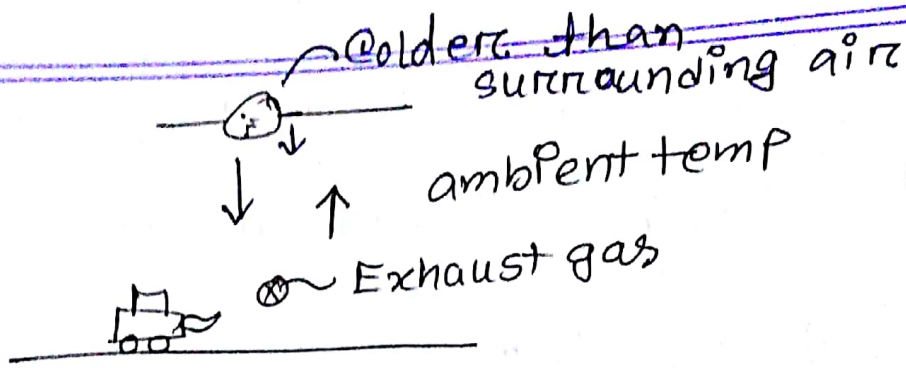 Colder than
surrounding air
ambient temp
Exhaust gas